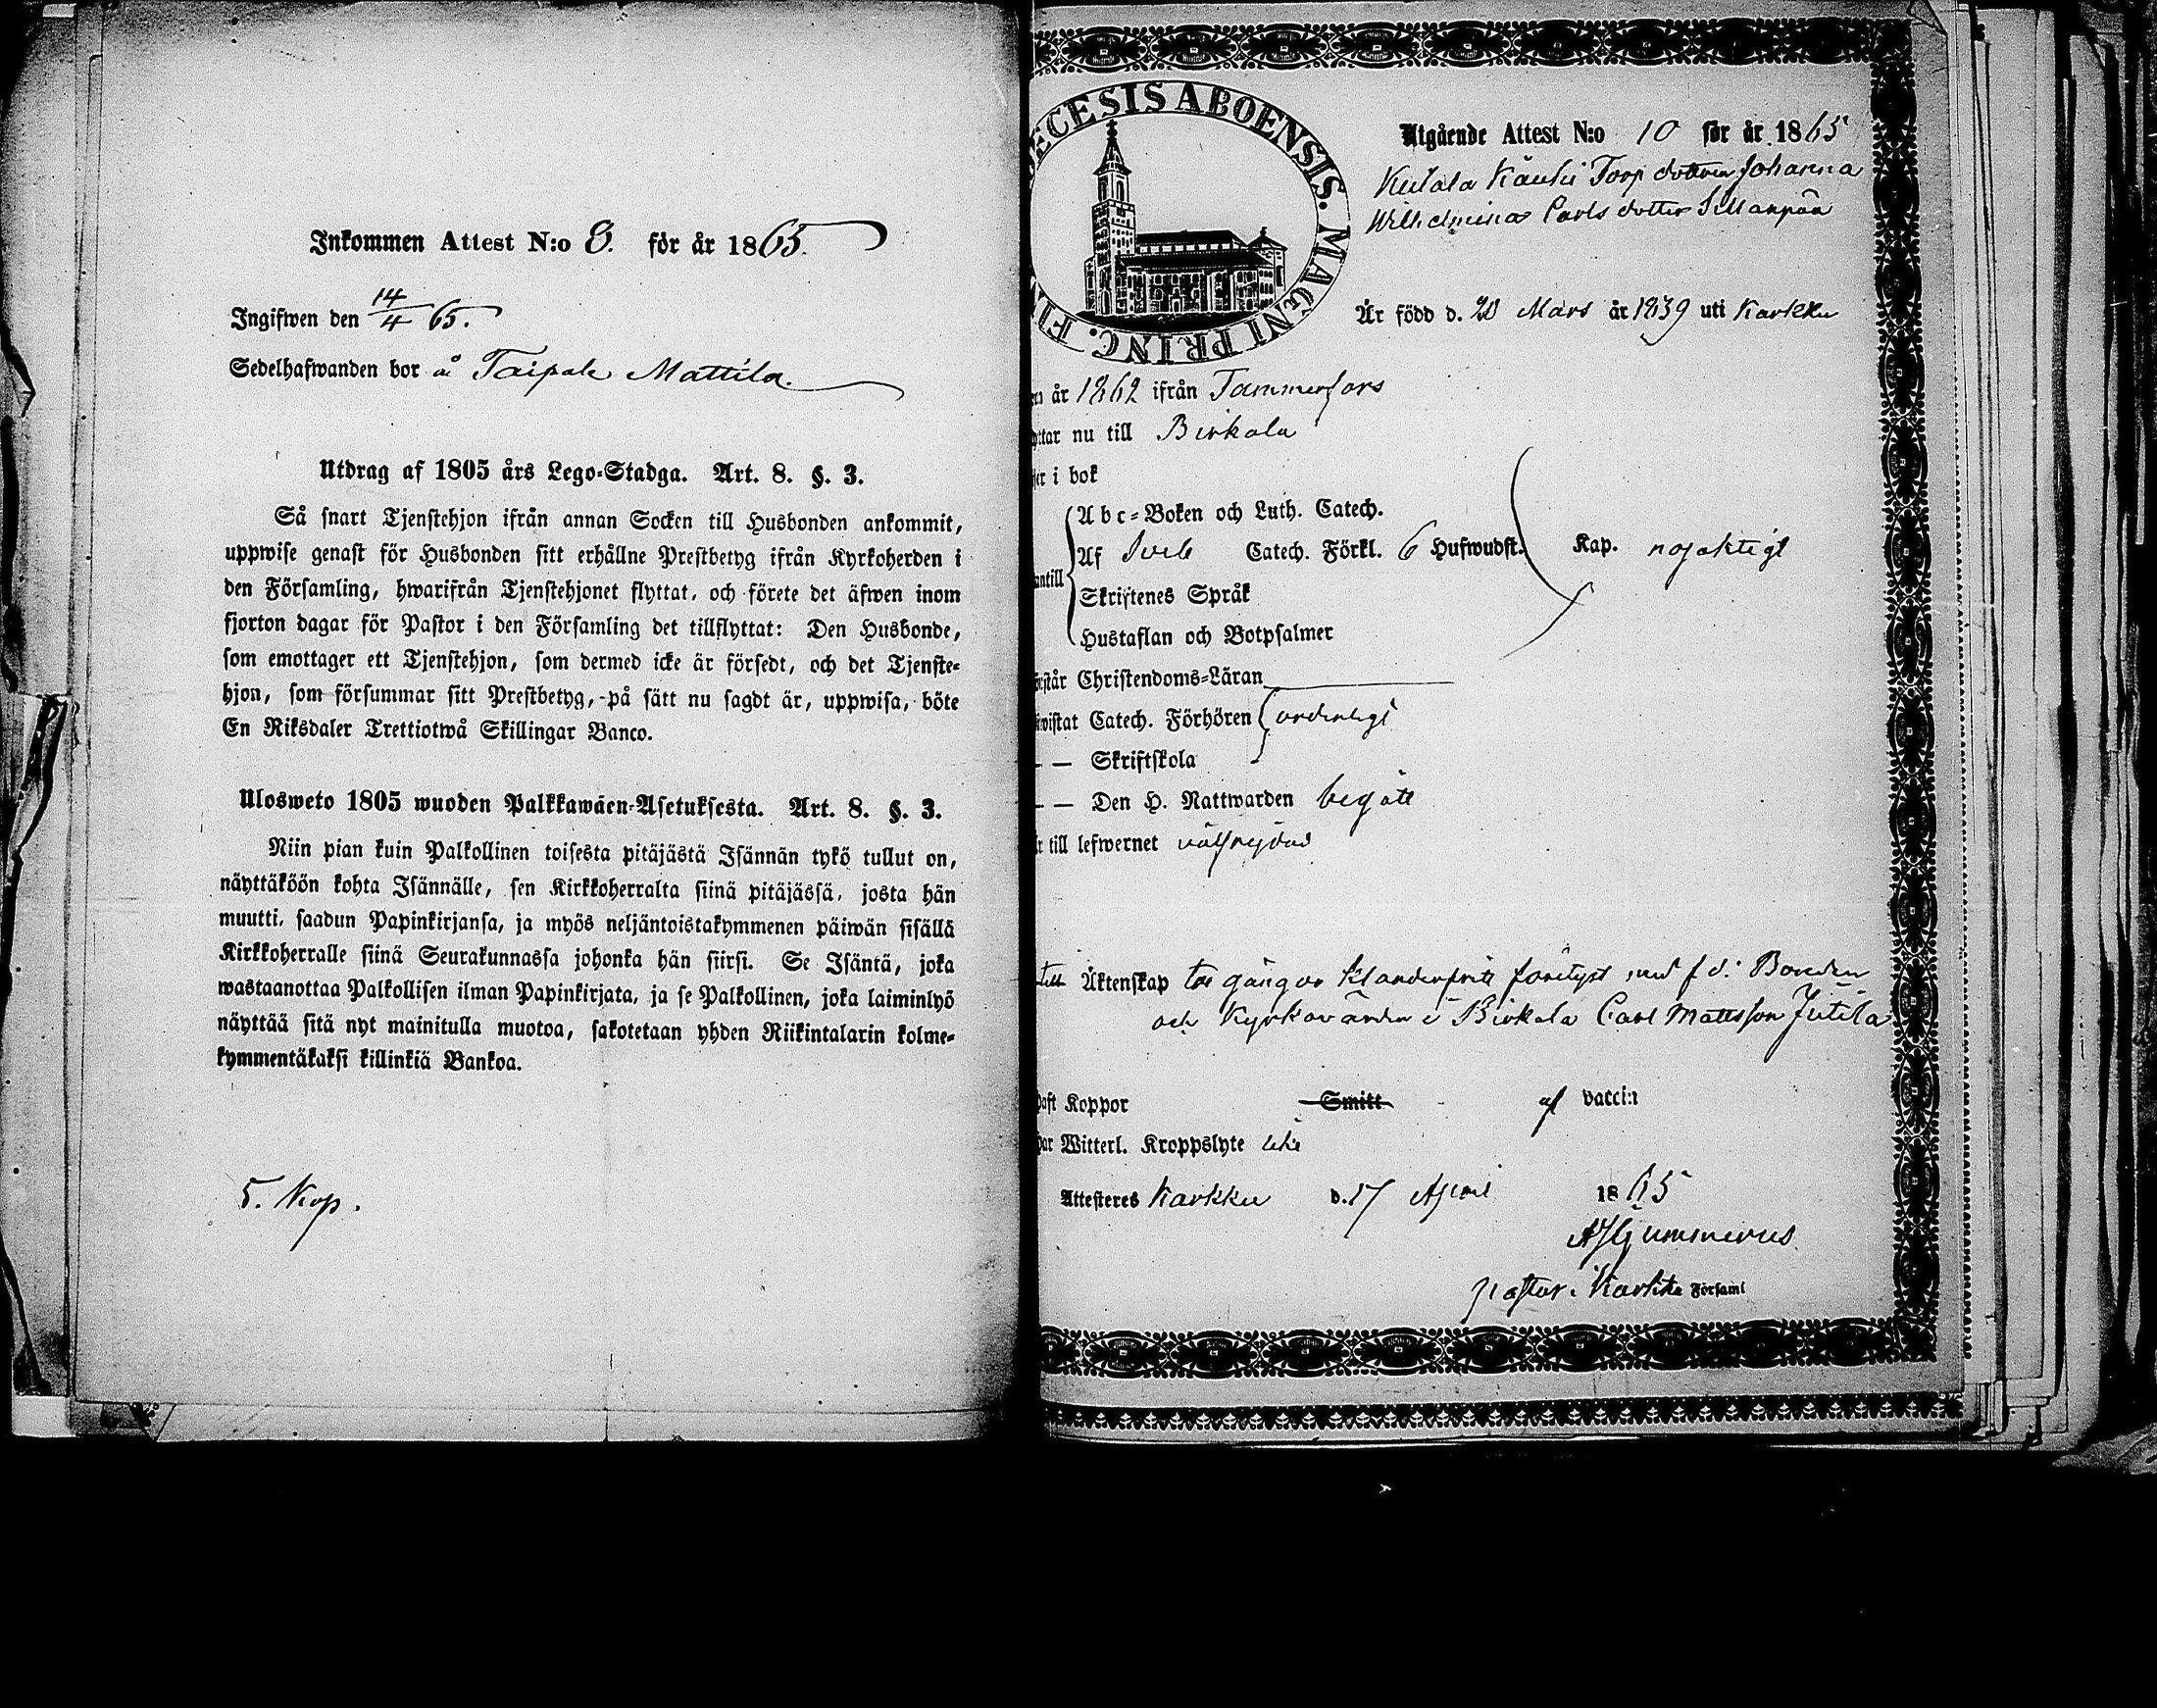 Inkommen Attest N:o 8. för år 1865.
Ingifwen den 14/4 65.
Sedelhafwanden bor å Taipale Mattila.
Utdrag af 1805 års Lego-Stadga. Art. 8. §. 3.
Så snart Tjenstehjon ifrån annan Socken till Husbonden ankommit,
uppwise genast för Husbonden sitt erhållne Prestbetyg ifrån Kyrkoherden i
den Församling, hwarifrån Tjenstehjonet flyttat, och förete det äfwen inom
fjorton dagar för Pastor i den Församling det tillflyttat: Den Husbonde,
som emottager ett Tjenstehjon, som dermed icke är försedt, och det Tjenste-
hjon, som försummar sitt Prestbetyg, på sätt nu sagdt är, uppwisa, böte
En Riksdaler Trettiotwå Skillingar Banco.
Ulosweto 1805 wuoden Palkkawäen-Asetuksesta. Art. 8. §. 3.
Niin pian kuin Palkollinen toisesta pitäjästä Isännän tykö tullut on,
näyttäköön kohta Isännälle, sen Kirkkoherralta siinä pitäjässä, josta hän
muutti, saadun Papinkirjansa, ja myös neljäntoistakymmenen päiwän sisällä
Kirkkoherralle siinä Seurakunnassa johonka hän siirsi. Se Isäntä, joka
wastaanottaa Palkollisen ilman Papinkirjata, ja se Palkollinen, joka laiminlyö
näyttää sitä nyt mainitulla muotoa, sakotetaan yhden Riikintalarin kolme-
kymmentäkaksi killinkiä Bankoa.
5. Kop.
ECESIS ABOENSIS. MAGNI PRINC. FI
Utgående Attest N:o 10 för år 1865
Kutala Käuhi Torp dottren Johanna
Wilhelmina Carls dotter Sillanpää
Är född d. 28 Mars år 1839 uti Karkku
år 1862 ifrån Tammerfors
ttar nu till Birkala
er i bok
Abc-Boken och Luth. Catech.
Af Sveb Catech. Förkl. 6 Hufwudst. Kap. nojaktigt
antill
Skriftenes Språk
Hustaflan och Botpsalmer
står Christendoms-Läran
wistat Catech. Förhören ordentligt
— — Skriftskola
— — Den H. Nattwarden begått
till lefwernet välfrejdad
till Äktenskap tre gångor klanderfritt förelyst med f d. Bonden
och Kyrkovärden i Birkala Carl Mattsson Jutila
haft Koppor Smitt af vaccin
har Witterl. Kroppslyte icke
Attesteres Karkku d. 17 April 1865
Hjummerus
pastor i Karkku Församl